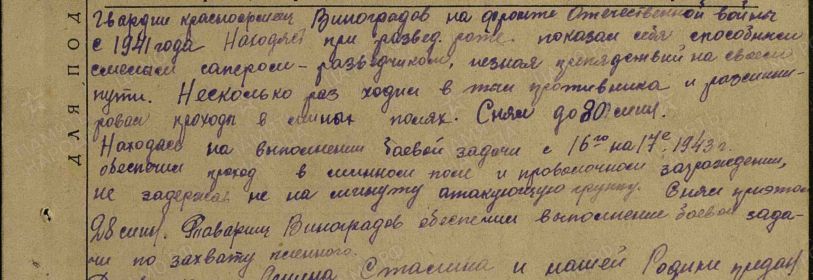 Гвардии красноармеец Виноградов на фронте Отечественной войны
с 1941 года Находясь при развед. роте. показал себя способным
смелым сапером-разведчиком, незная препядствий на своем
пути. Несколько раз ходил в тыл противника и размини-
ровал проходы в минных полях. Снял до 80 мин.
Находясь на выполнении боевой задачи с 16го на 17е. 1943 г.
обеспечил проход в минном поле и проволочном заграждении,
не задержав не на минуту атакующую группу. Снял приэтом
28 мин. Товарищ Виноградов обеспечил выполнение боевой зада-
чи по захвату пленного.
Сталина и нашей Родине предан
ДЛЯ ПОД